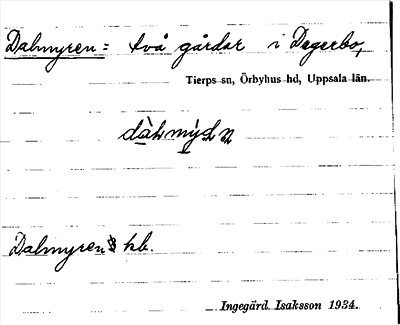 Dalmyren = två gårdar i Dagarbo,
Tierps sn, Örbyhus hd, Uppsala län.
Dalmyren hb.
Ingegärd Isaksson 1934.